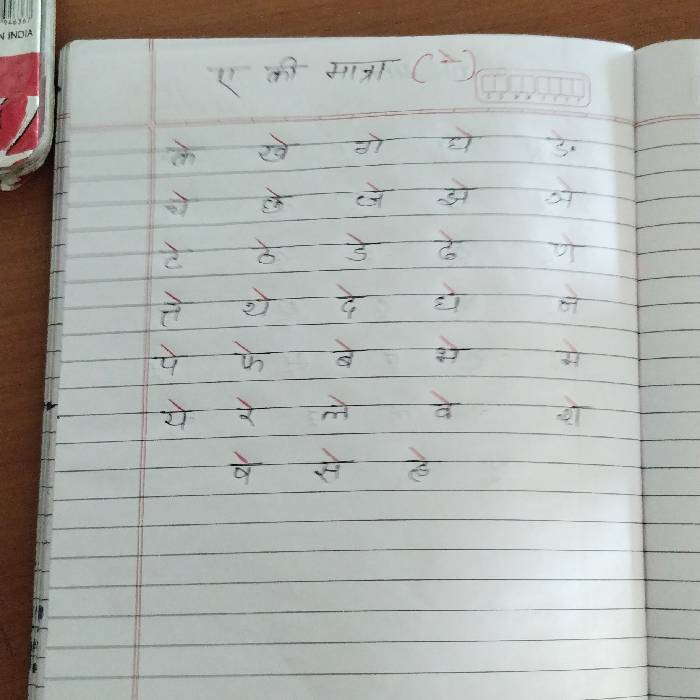 N INDIA
ए की मात्रा ( े )
के खे गे घे ङे
चे छे जे झे ञे
टे ठे डे ढे णे
ते थे दे धे ने
पे फे बे भे मे
ये रे ले वे शे
षे से हे